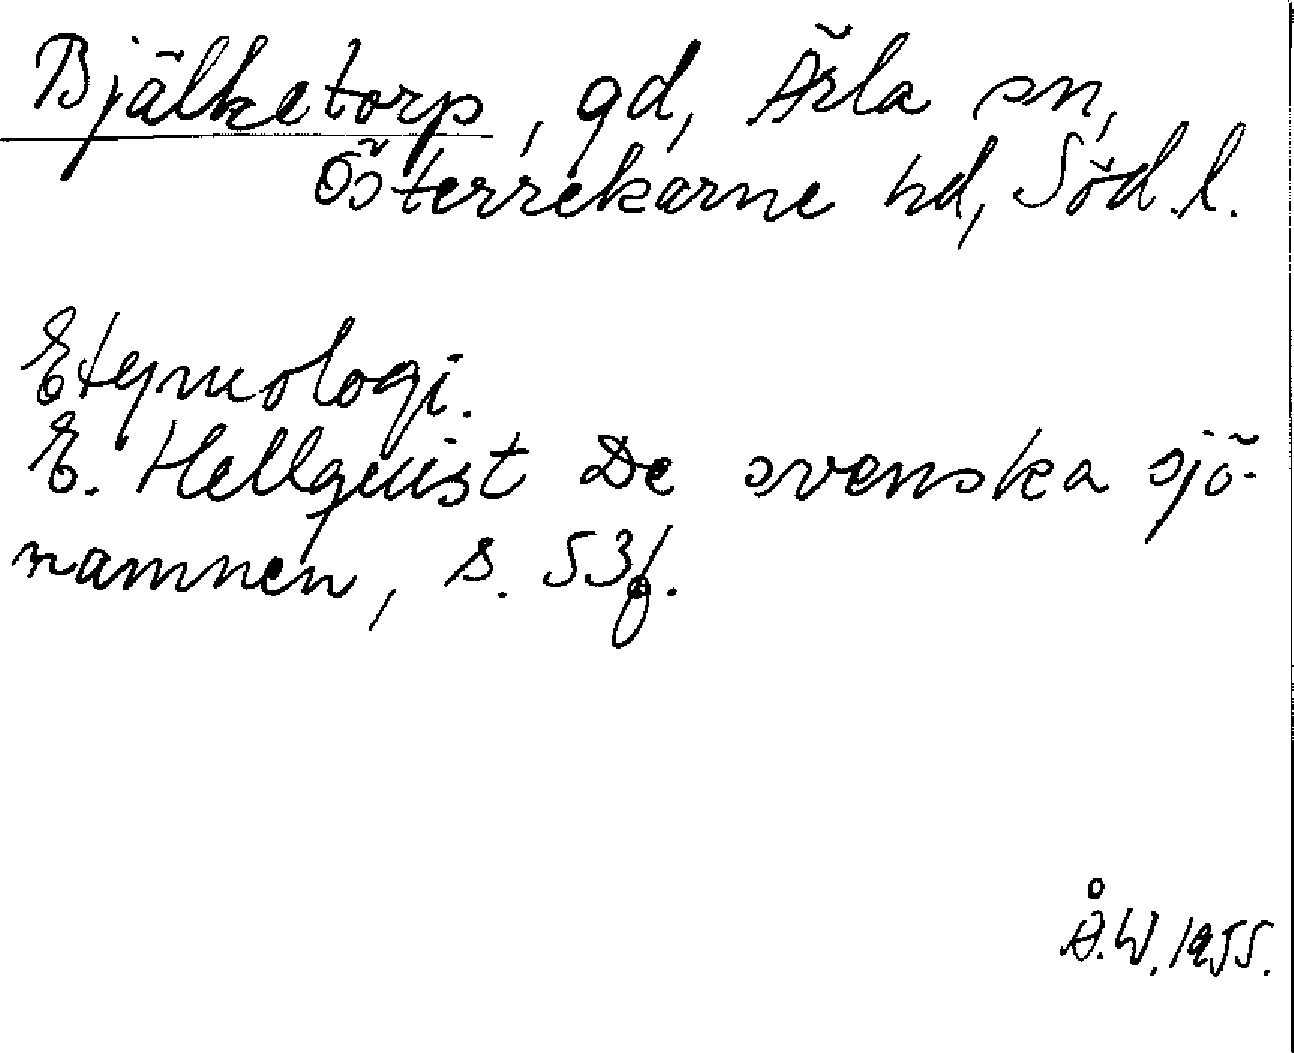 Bjälketorp, gd, Ärla sn,
Österrekarne hd, Söd.l.
Etymologi.
E. Hellquist De svenska sjö-
namnen, s. 53f.
Å.W. 1955.